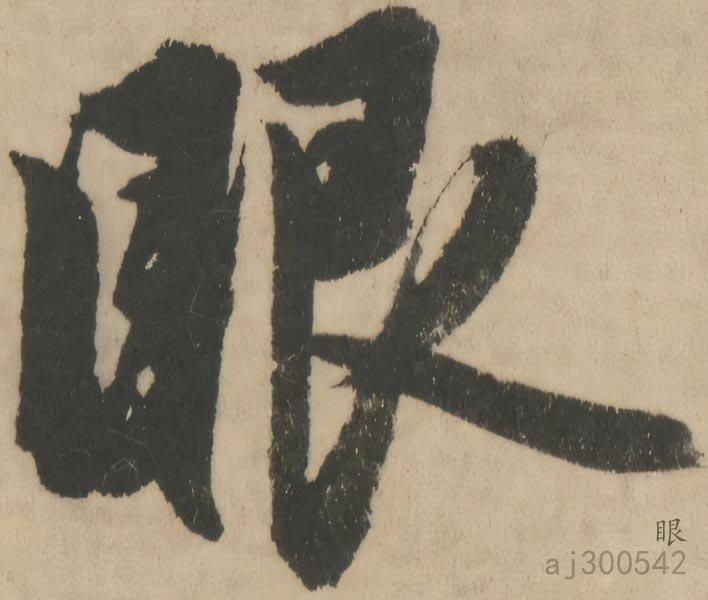 眼
眼
aj300542